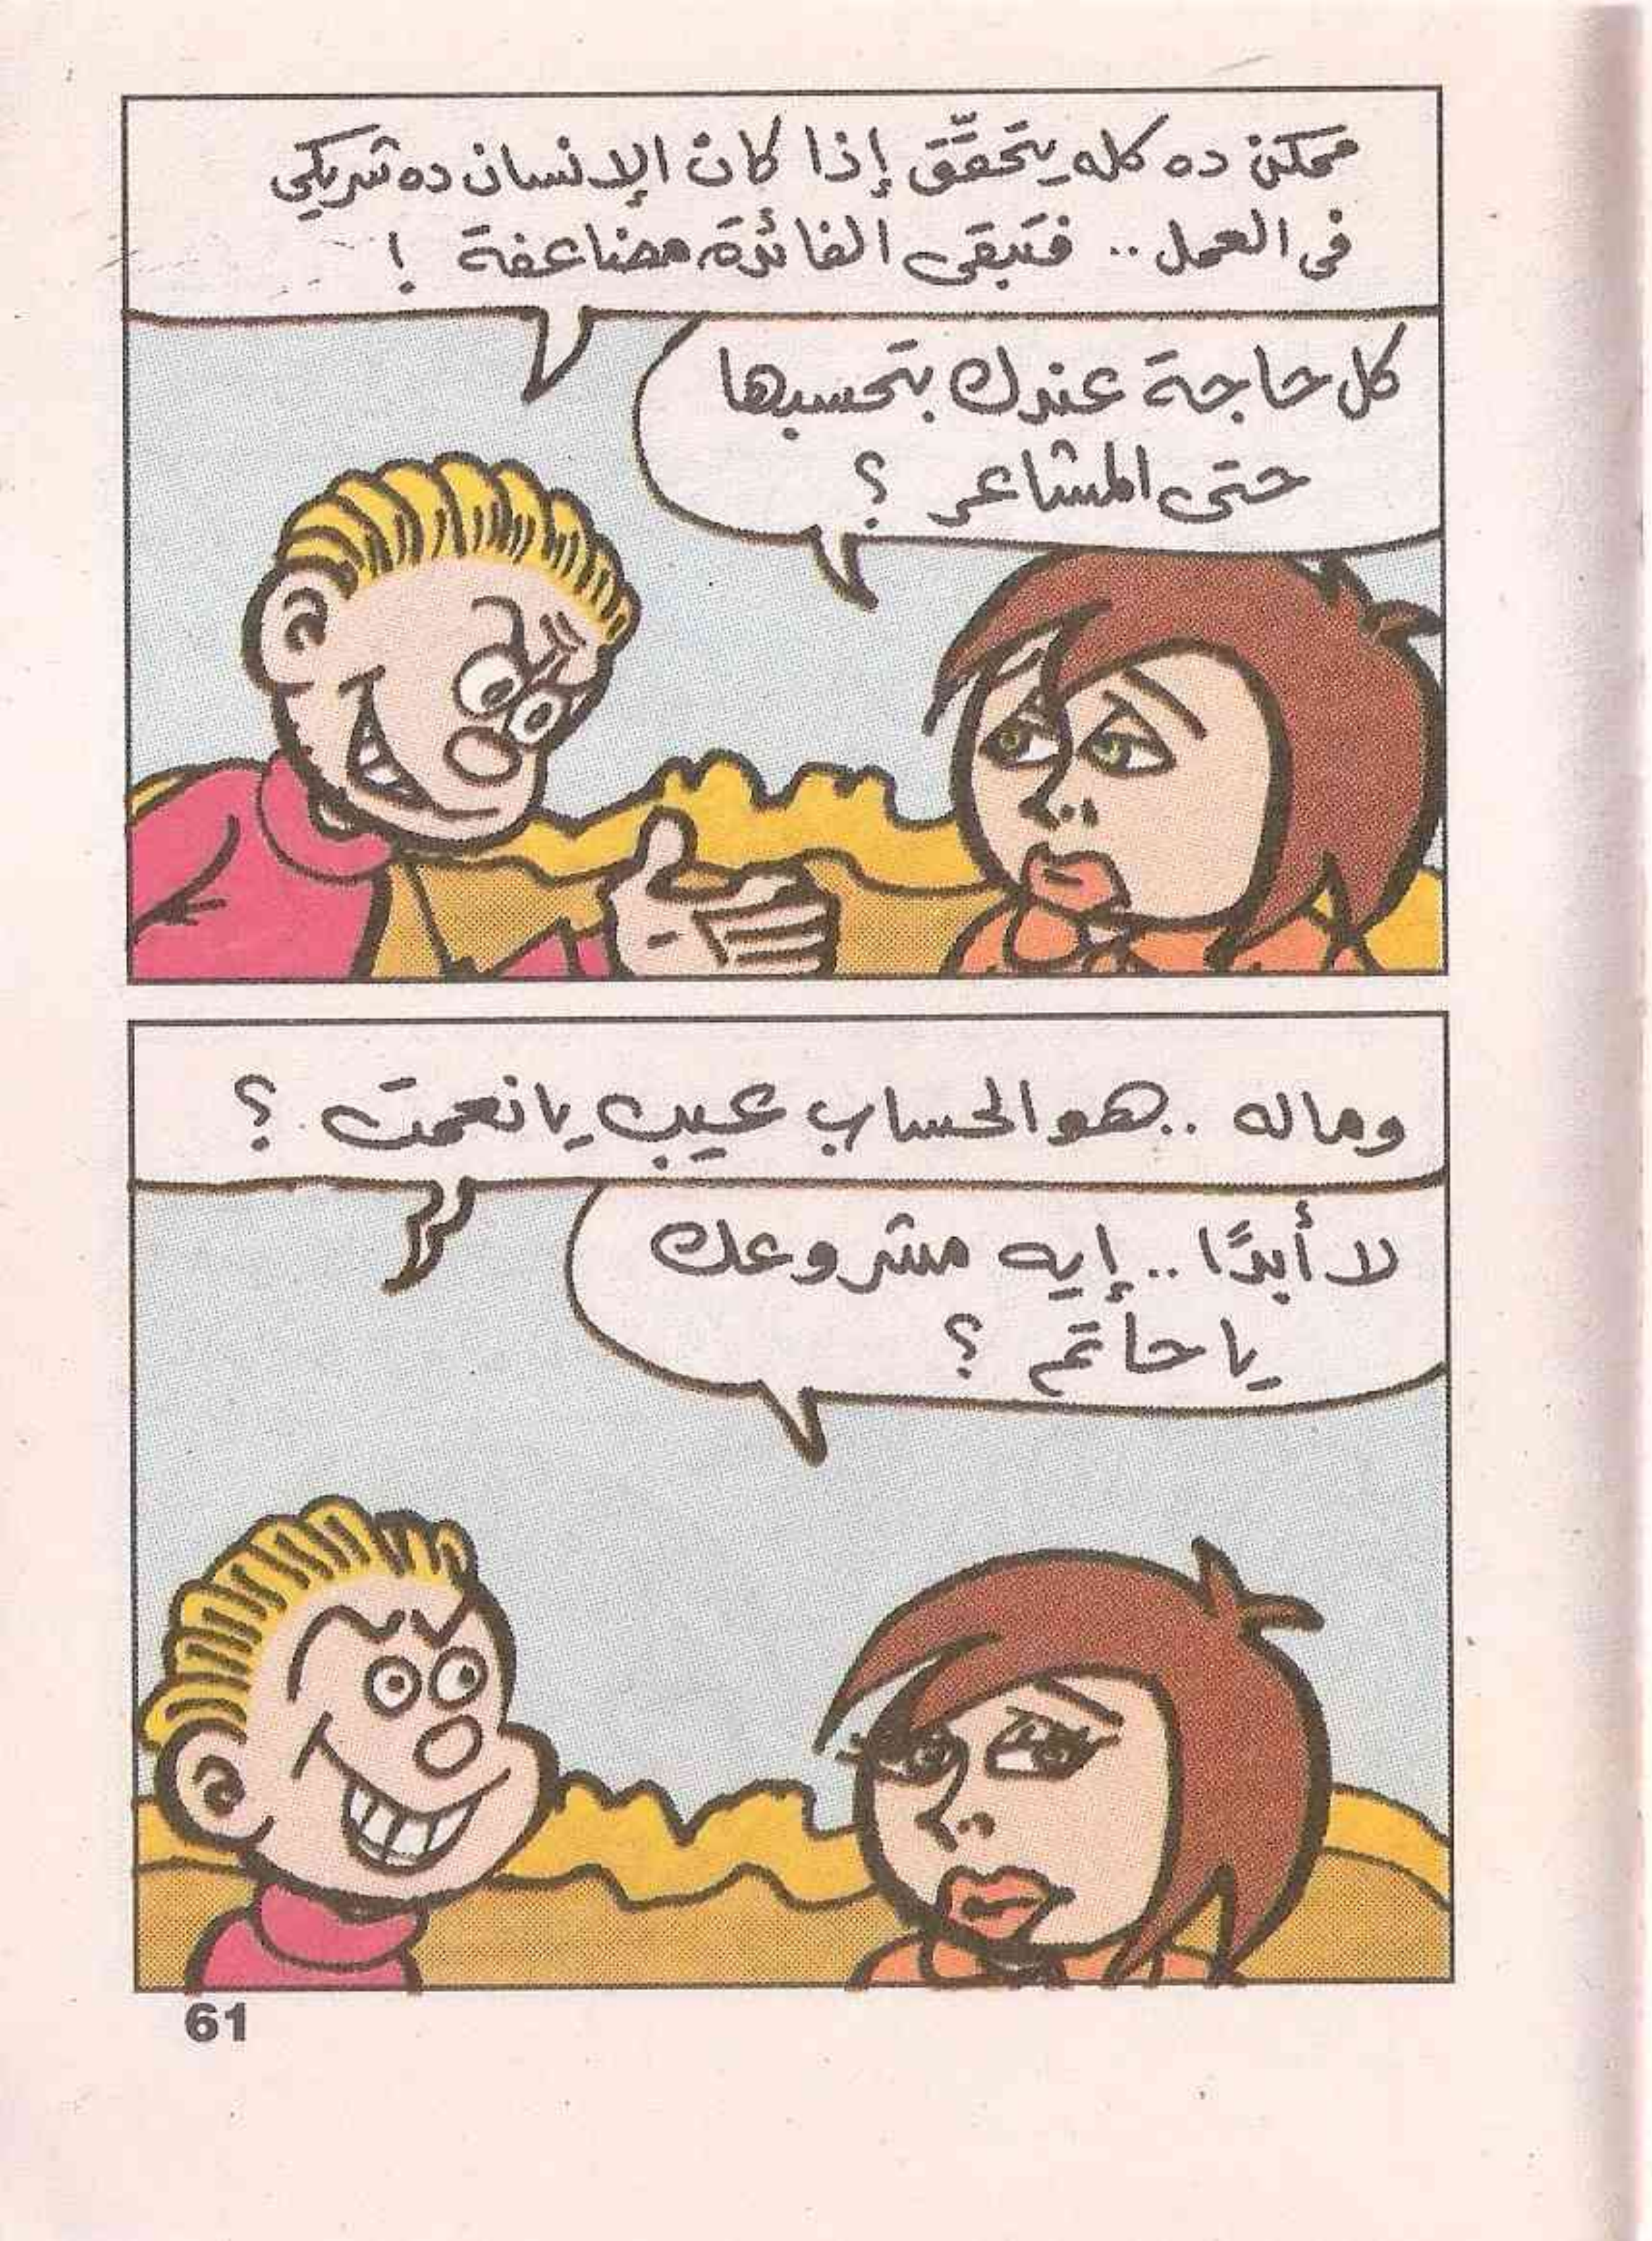 ممكن ده كله يتحقَّق إذا كان الإنسان ده شريكي
فى العمل.. فتبقى الفائدة مضاعفة !
كل حاجة عندك بتحسبها
حتى المشاعر ؟
وماله ..هو الحساب عيب يا نعمت ؟
لا أبدًا.. إيه مشروعك
يا حاتم ؟
61